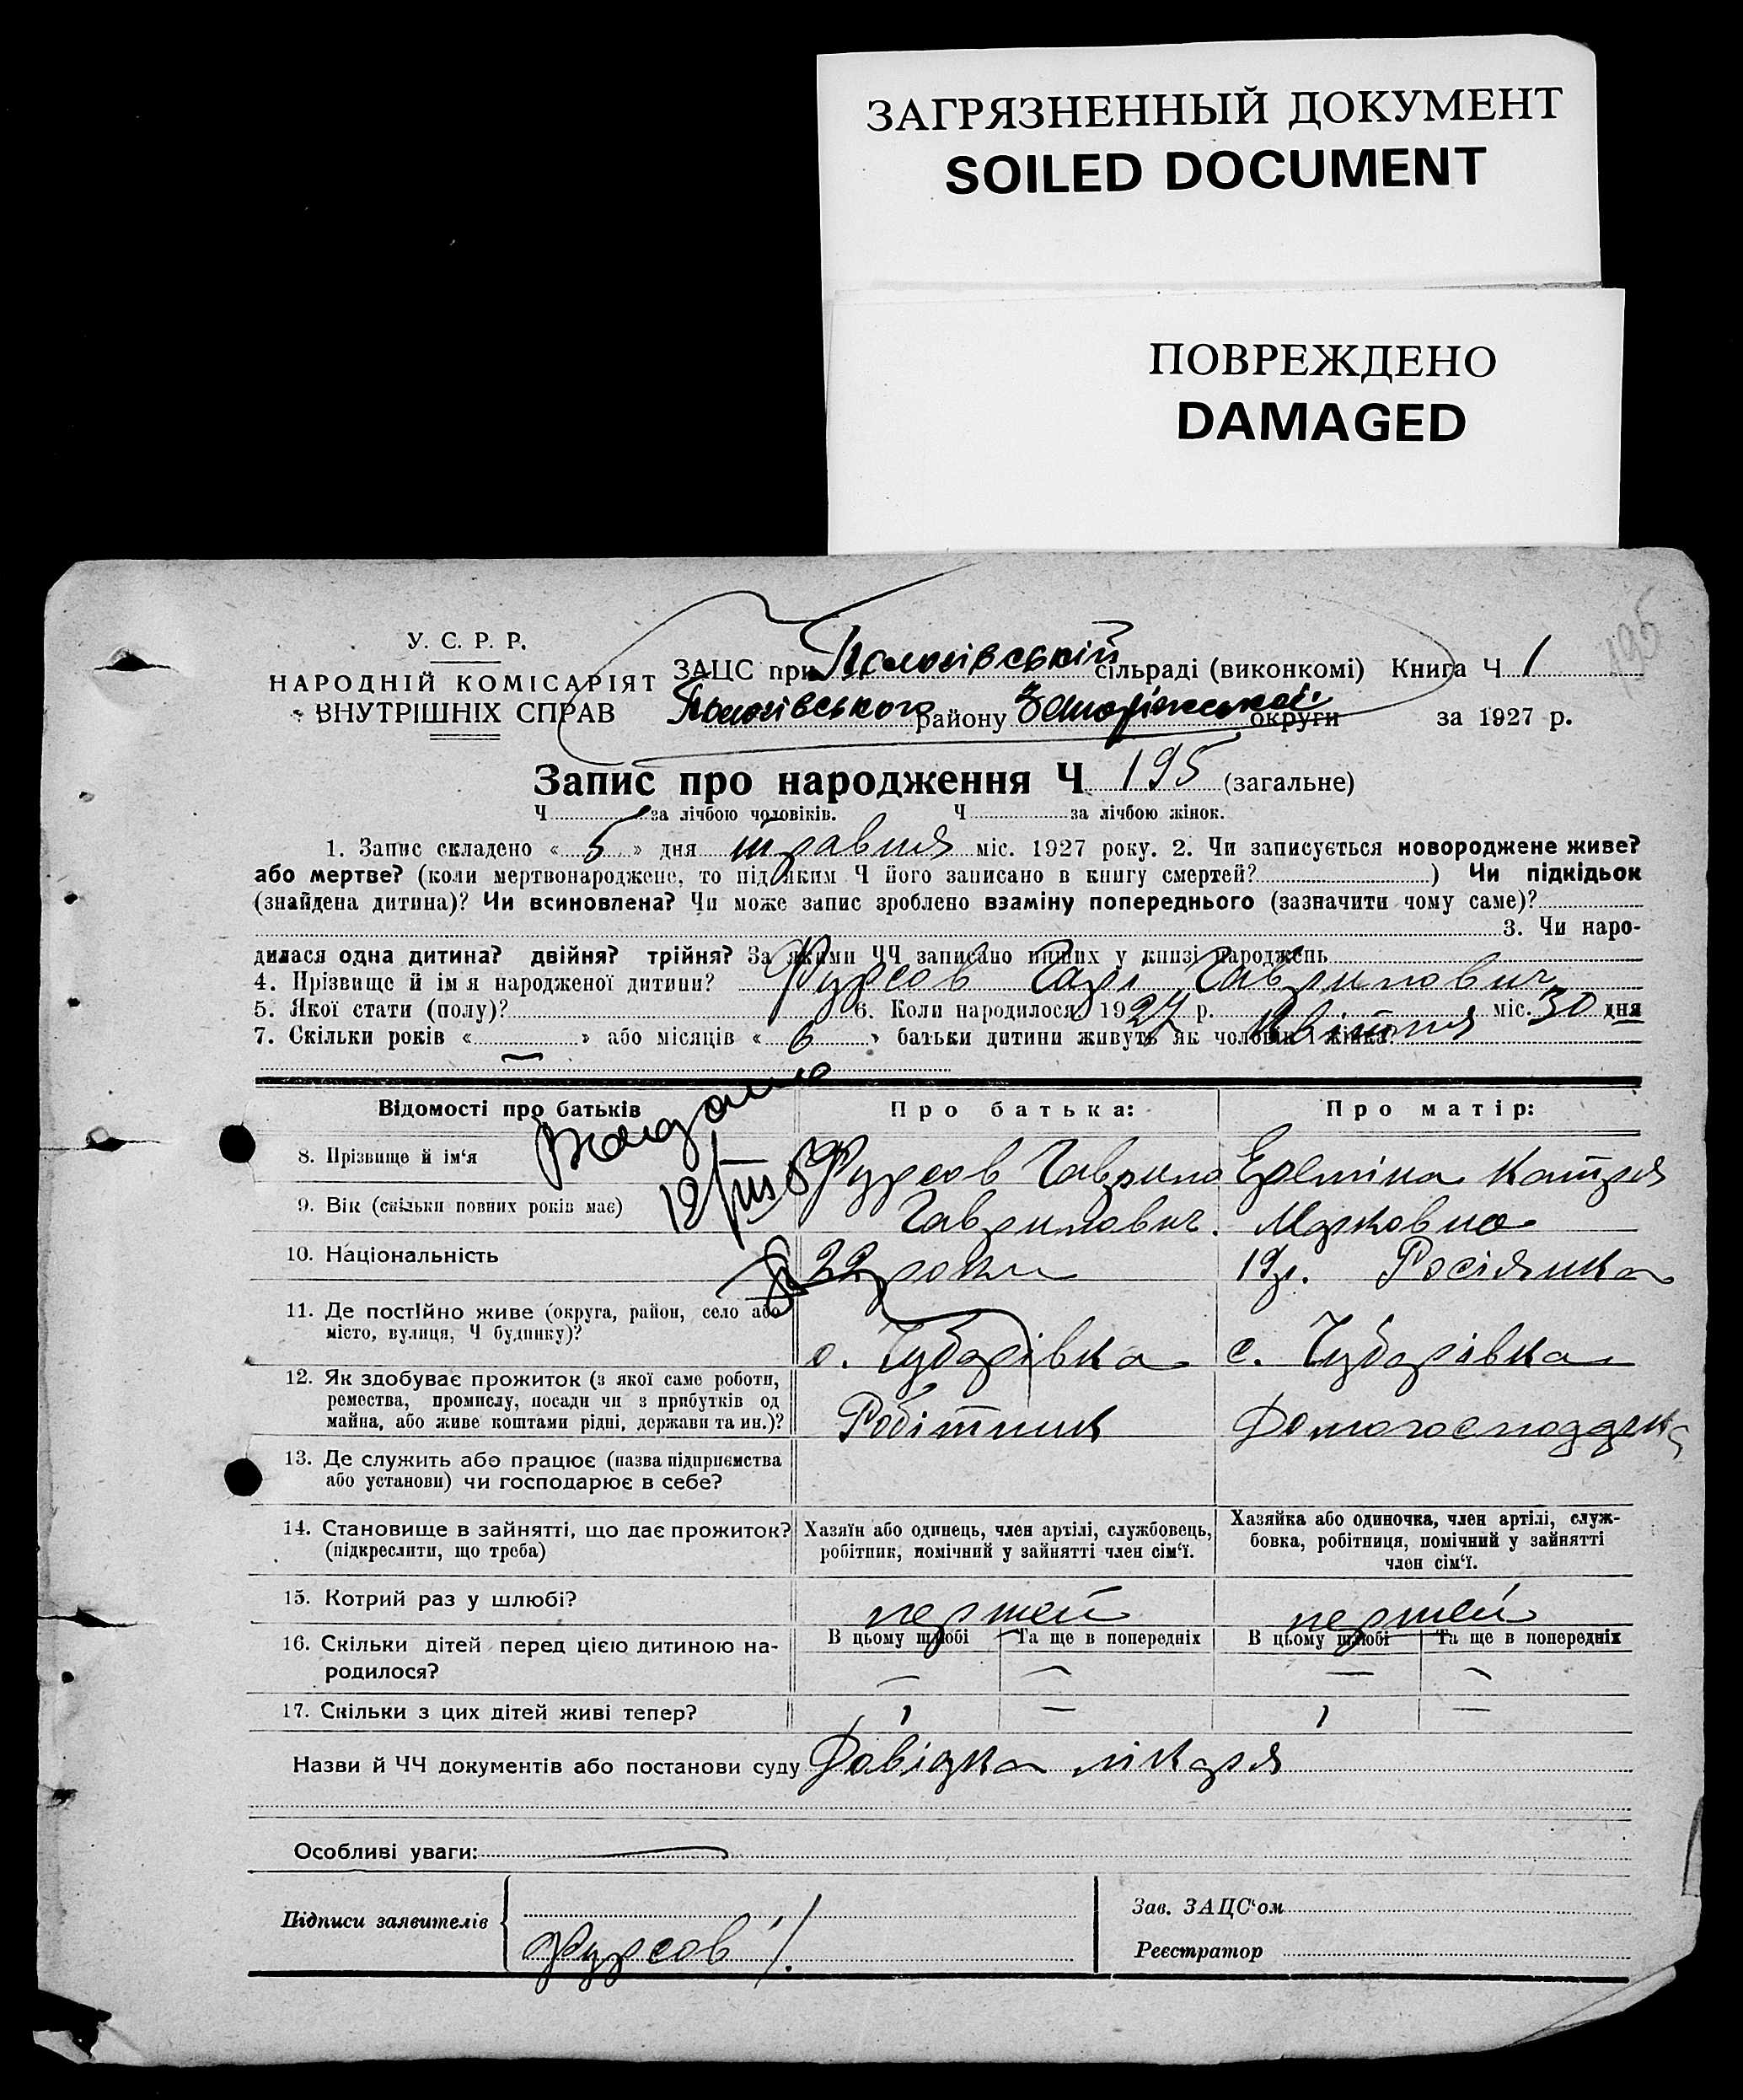 ЗАГРЯЗНЕННЫЙ ДОКУМЕНТ
SOILED DOCUMENT
ПОВРЕЖДЕНО
DAMAGED
195
У. С. Р. Р.
НАРОДНІЙ КОМІСАРІЯТ
ВНУТРІШНІХ СПРАВ
ЗАЦС при Пологівській сільраді (виконкомі) Книга Ч 1
Пологівського району Запоріжської округи за 1927 р.
Запис про народження Ч 195 (загальне)
Ч за лічбою чоловіків. Ч за лічбою жінок.
1. Запис складено « 5 » дня травня міс. 1927 року. 2. Чи записується новороджене живе?
або мертве? (коли мертвонароджене, то під яким Ч його записано в книгу смертей? ) Чи підкідьок
(знайдена дитина)? Чи всиновлена? Чи може запис зроблено взаміну попереднього (зазначити чому саме)?
3. Чи наро-
дилася одна дитина? двійня? трійня? За якими ЧЧ записано инших у книзі народжень
4. Прізвище й ім я народженої дитини? Фурсов Гаврилович
5. Якої стати (полу)? 6. Коли народилося 1927 р. Квітня міс. 30 дня
7. Скільки років « — » або місяців « 6 » батьки дитини живуть як чоловік і жінка?
Відомості про батьків Про батька: Про матір:
8. Прізвище й ім‘я Фурсов Гаврило Ереміна Катря
9. Вік (скільки повних років має) Гаврилович. Марковна
10. Національність 22 роки 19р. Росіянка
11. Де постійно живе (округа, район, село або
місто, вулиця, Ч будинку)? с. Чубарівка с. Чубарівка
12. Як здобуває прожиток (з якої саме роботи,
ремества, промислу, посади чи з прибутків од
майна, або живе коштами рідні, держави та ин.)? Робітник
13. Де служить або працює (назва підприємства
або установи) чи господарює в себе?
14. Становище в зайнятті, що дає прожиток?
(підкреслити, що треба)
Хазяїн або одинець, член артілі, службовець,
робітник, помічний у зайнятті член сім‘ї.
Хазяйка або одиночка, член артілі, служ-
бовка, робітниця, помічний у зайнятті
член сім‘ї.
15. Котрий раз у шлюбі? першей першей
16. Скільки дітей перед цією дитиною на-
родилося?
В цьому шлюбі Та ще в попередніх В цьому шлюбі Та ще в попередніх
— — — —
17. Скільки з цих дітей живі тепер? 1 — 1 —
Назви й ЧЧ документів або постанови суду Довідка лікаря
Особливі уваги: —
Підписи заявителів
Фурсов
Зав. ЗАЦС‘ом
Реєстратор